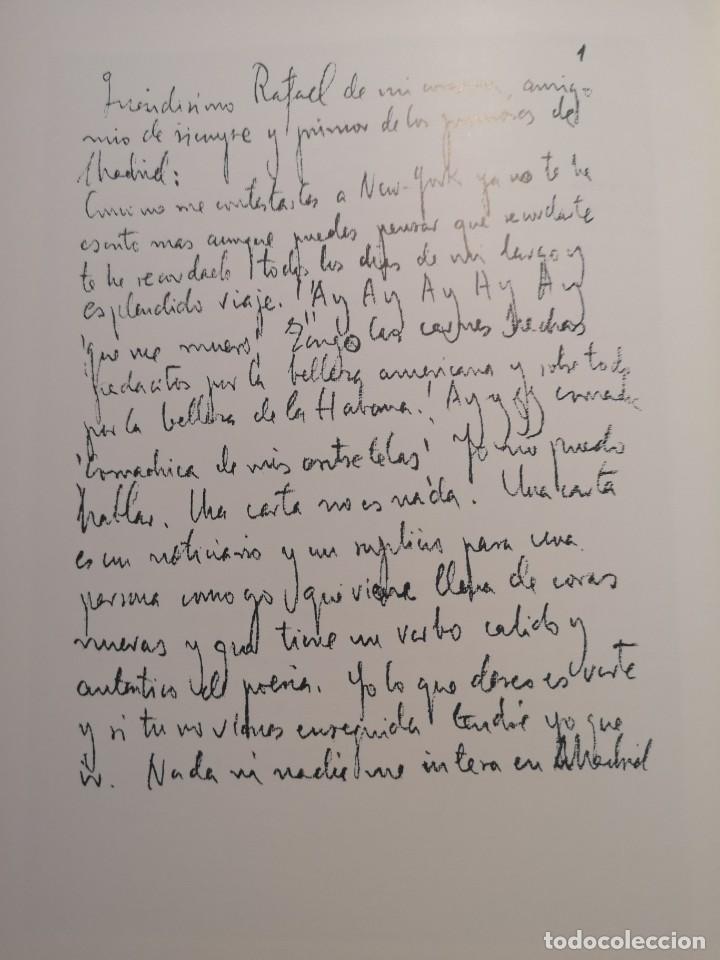 1
Queridisimo Rafael de mi corazon, amigo
mio de siempre y primor de los primores de
Madrid:
Como no me contestastes a New-York ya no te he
escrito mas aunque puedes pensar que recordarte
te he recordado todos los dias de mi largo y
esplendido viaje. ¡Ay Ay Ay Ay Ay
que me muero! Tengo las carnes hechas
pedacitos por la belleza americana y sobre todo
por la belleza de la Habana. ¡Ay comadre
¡Comadrica de mis entretelas! Yo no puedo
hablar. Una carta no es nada. Una carta
es un noticiario y un suplicio para una
persona como yo que viene llena de cosas
nuevas y que tiene un verbo calido y
autentico de poesia. Yo lo que deseo es verte
y si tu no vienes enseguida tendré yo que
ir. Nada ni nadie me intera en Madrid
todocoleccion
todocoleccion.net